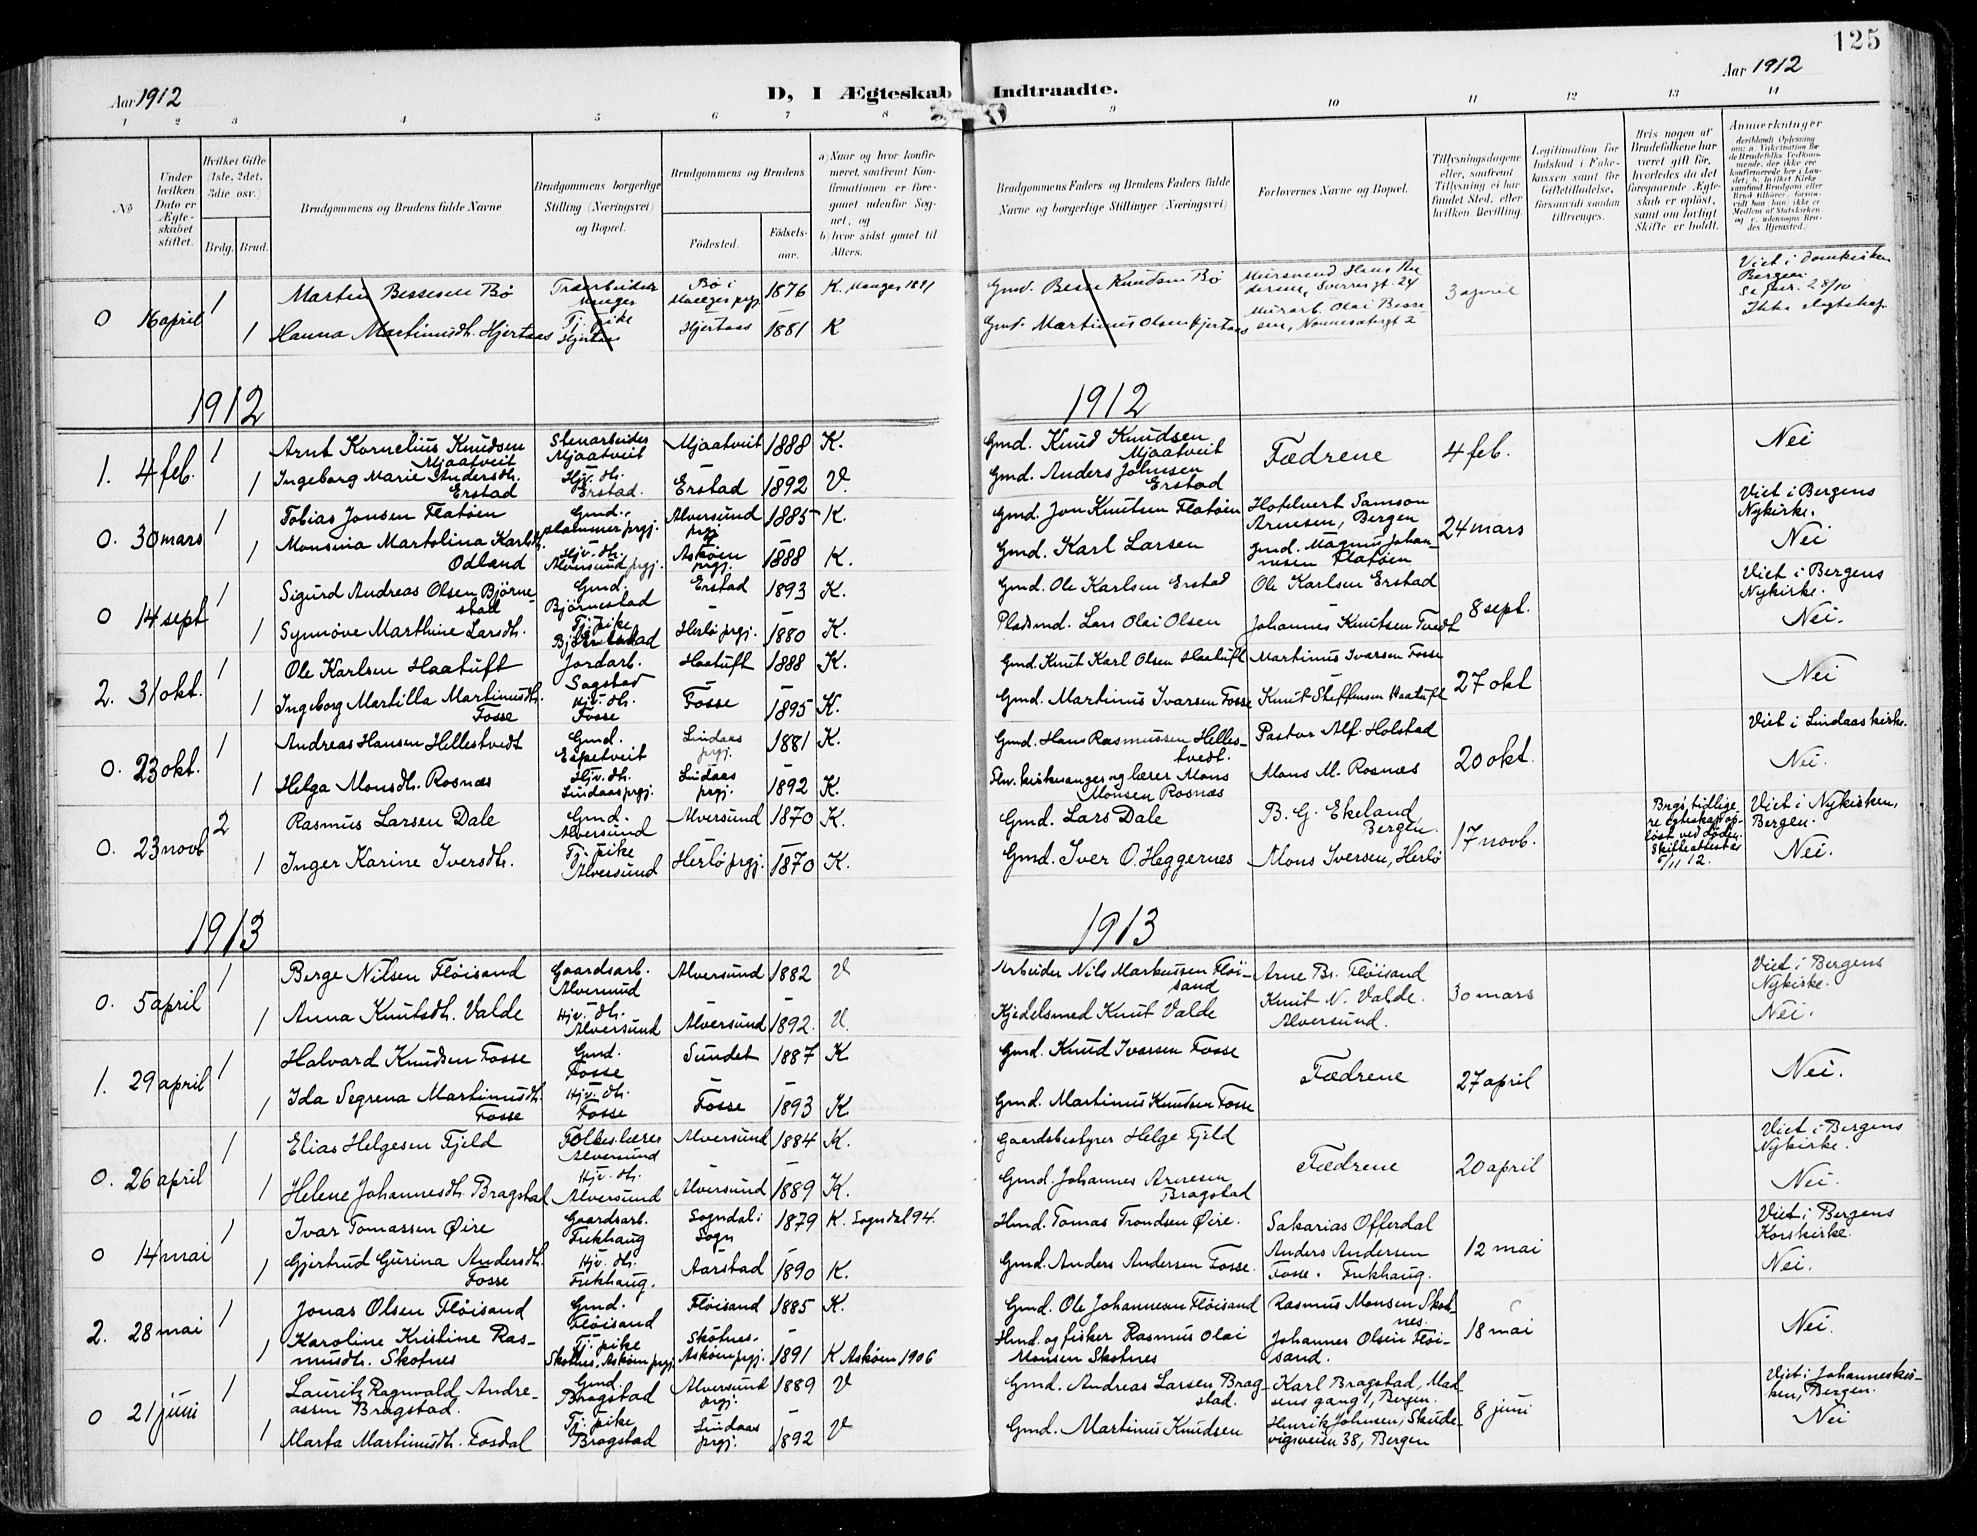 125
Aar 1912
D, I Ægteskab Indtraadte.
Aar 1912
1 2 3 4 5 6 7 8 9 10 11 12 13 14
No
Under hvilken Dato er Ægteskabet stiftet.
Hvilket Gifte (1ste, 2det, 3die osv.)
Brdg. Brud.
Brudgommens og Brudens fulde Navne
Brudgommens borgerlige Stilling (Næringsvei) og Bopæl.
Brudgommens og Brudens
Födested. Födselsaar.
a) Naar og hvor konfirmeret, saafremt Konfirmationen er foregaaet udenfor Sognet, og
b) hvor sidst gaaet til Alters.
Brudgommens Faders og Brudens Faders fulde Navne og borgerlige Stillinger (Næringsvei)
Forlovernes Navne og Bopæl.
Tillysningsdagene eller, saafremt Tillysning ei har fundet Sted, efter hvilken Bevilling.
Legitimation for Indskud i Enkekassen samt for Giftetilladelse, forsaavidt saadan tiltrænges.
Hvis nogen af Brudefolkene har været gift för, hvorledes da det foregaaende Ægteskab er oplöst, samt om lovligt Skifte er holdt.
Anmerkninger
0 16 april 1 Martin Bessesen Bö Træarbeider Manger Bö i Manger prgj. 1876 K. Manger 1891
1 Hanna Martinusdh. Hjertaas Tj. pike Hjertaas Hjertaas 1881 K
Gmd. Besse Knudsen Bö
Gmd. Martinus Olsen Hjertaas
3 april
Viet i Domkirken Bergen.
Ikke
1912 1912
1. 4 feb. 1 Arnt Kornelius Knudsen Mjaatveit Stenarbeider Mjaatveit Mjaatveit 1888 K.
1 Ingeborg Marie Andersdh. Erstad Hjv. dh. Erstad. Erstad 1892 V.
Gmd. Knud Knudsen Mjaatveit
Gmd. Anders Johnsen Erstad
Fædrene 4 feb. Nei
0. 30 mars 1 Tobias Jonsen Flatöen Gmd. Hammer prgj. Alversund prgj 1885 K.
1 Monsina Martolina Karlsdh. Odland Hjv. dh. Alversund prgj. Asköen prgj. 1888 K.
Gmd. Jon Knutsen Flatöen
Gmd. Karl Larsen
Hotelvert Samson Arnesen, Bergen
gmd. Magnus Johannesen Flatöen
24 mars
Viet i Bergens Nykirke.
Nei
0 14 sept 1 Sigurd Andreas Olsen Björnestad Gmd. Björnestad Erstad 1893 K.
1 Synnöve Marthine Larsdh. Tj. pike Björnestad Herlö prgj. 1880 K.
Gmd. Ole Karlsen Erstad
Pladsmd. Lars Olai Olsen
Ole Karlsen Erstad
Johannes Knutsen Tvedt
8 sept.
Viet i Bergens Nykirke.
Nei.
2. 31 okt. 1 Ole Karlsen Haatuft Jordarb. Sagstad Haatuft 1888 K.
1 Ingeborg Martilla Martinusdh. Fosse Hjv. dh. Fosse Fosse 1895 K.
Gmd. Knut Karl Olsen Haatuft
Gmd. Martinus Ivarsen Fosse
Martinus Ivarsen Fosse
Knut Steffensen Haatuft
27 okt
Nei
0. 23 okt. 1 Andreas Hansen Hellestvedt Gmd. Espetveit Lindaas prgj. 1881 K.
1 Helga Monsdh. Rosnæs Hjv. dh. Lindaas prgj. Lindaas prgj. 1892 K.
Gmd. Hans Rasmussen Hellestvedt.
kirkesanger og lærer Mons Monsen Rosnæs
Pastor Alf. Holstad
Mons M. Rosnæs
20 okt.
Viet i Lindaas kirke.
Nei.
0. 23 novb 2 Rasmus Larsen Dale Gmd. Alversund Alversund 1870 K.
1 Inger Karine Iversdh. Tj. pike Alversund Herlö prgj. 1870 K.
Gmd. Lars Dale
Gmd. Iver O. Heggernes
B. G. Ekeland Bergen.
Mons Iversen, Herlö
17 novb.
Brgs. tidligere egteskap oplöst ved döden. Skifteattest av 5/11 12.
Viet i Nykirken, Bergen.
Nei.
1913 1913
0. 5 april 1 Berge Nilsen Flöisand Gaardsarb. Alversund Alversund 1882 V
1 Anna Knutsdh. Valde Hjv. dh. Alversund Alversund 1892. V.
Arbeider Nils Markussen Flöisand
Kjedelsmed Knut Valde
Arne Br. Flöisand
Knut N. Valde. Alversund.
30 mars
Viet i Bergens Nykirke.
Nei.
1. 29 april 1 Halvard Knudsen Fosse Gmd. Fosse Sundet 1887 K
1 Ida Segrena Martinusdh. Fosse Hjv. dh. Fosse Fosse 1893 K
Gmd. Knud Ivarsen Fosse
Gmd. Martinus Knudsen Fosse
Fædrene 27 april Nei.
0. 26 april 1 Elias Helgesen Fjeld Folkeslærer Alversund Alversund 1884 K.
1 Helene Johannesdh. Bragstad Hjv. dh. Alversund Alversund 1889 K.
Gaardsbestyrer Helge Fjeld
Gmd. Johannes Arnesen Bragstad
Fædrene 20 april
Viet i Bergens Nykirke.
Nei.
0 14 mai 1 Ivar Tomassen Öire Gaardsarb. Frekhaug Sogndal i Sogn 1879 K. Sogndal 94.
1 Gjertrud Gurina Andersdh. Fosse Hjv. dh. Frekhaug. Aarstad 1890 K.
Hmd. Tomas Trondsen Öire.
Gmd. Anders Andersen Fosse.
Sakarias Offerdal
Anders Andersen Fosse. Frekhaug.
12 mai
Viet i Bergens Korskirke.
Nei.
2. 28 mai 1 Jonas Olsen Flöisand Gmd. Flöisand Flöisand 1885 K.
1 Karoline Kristine Rasmusdh. Skotnes Tj. pike Skotnes, Asköen prgj. Skötnes. Asköen prgj. 1891 K Asköen 1906
Gmd. Ole Johannesen Flöisand
Hmd. og fisker Rasmus Olai Monsen Skotnes
Rasmus Monsen Skotnes.
Johannes Olsen Flöisand.
18 mai
Nei.
0 21 juni 1 Lauritz Ragnvald Andreassen Bragstad. Gmd. Bragstad Alversund prgj. 1889 V
1 Marta Martinusdh. Fosdal Tj. pike Bragstad Lindaas prgj. 1892 V
Gmd. Andreas Larsen Bragstad.
Gmd. Martinus Knudsen
Karl Bragstad, Madsens gang 1, Bergen.
Henrik Johnsen, Skudevigsveien 38, Bergen
8 juni
Viet i Johanneskirken, Bergen.
Nei